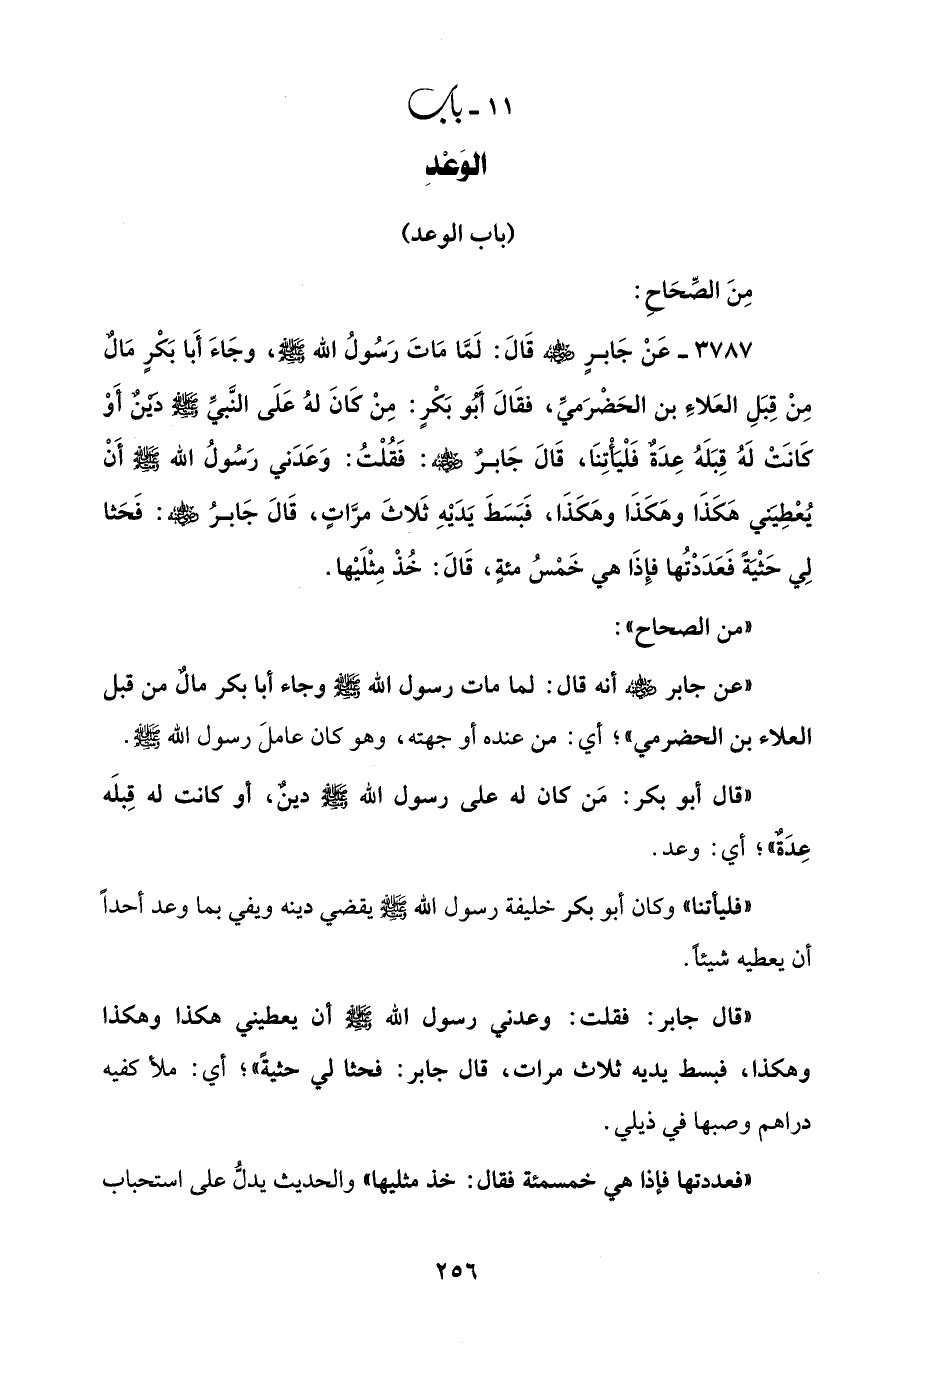 ١١ - باب
الوَعْدِ
(باب الوعد)
مِنَ الصِّحَاحِ:
٣٧٨٧ - عَنْ جَابرٍ ﵁ قَالَ: لَمَّا مَاتَ رَسُولُ الله ﷺ، وجَاءَ أَبا بَكْرٍ مَالٌ
مِنْ قِبَلِ العَلاءِ بن الحَضْرَميِّ، فقَالَ أَبُو بَكْرٍ: مِنْ كَانَ لهُ عَلَى النَّبيِّ ﷺ دَيْنٌ أَوْ
كَانَتْ لَهُ قِبَلَهُ عِدَةٌ فَلْيَأْتِنَا، قَالَ جَابرٌ ﵁: فَقُلْتُ: وَعَدَني رَسُولُ الله ﷺ أَنْ
يُعْطِيَني هَكَذَا وهَكَذَا وهَكَذَا، فَبَسَطَ يَدَيْهِ ثَلاثَ مرَّاتٍ، قَالَ جَابرُ ﵁: فَحَثا
لِي حَثْيَةً فَعَدَدْتُها فإِذَا هي خَمْسُ مئةٍ، قَالَ: خُذْ مِثْلَيْها.
«من الصحاح»:
«عن جابر ﵁ أنه قال: لما مات رسول الله ﷺ وجاء أبا بكر مالٌ من قبل
العلاء بن الحضرمي»؛ أي: من عنده أو جهته، وهو كان عاملَ رسول الله ﷺ.
«قال أبو بكر: مَن كان له على رسول الله ﷺ دينٌ، أو كانت له قِبلَه
عِدَةٌ»؛ أي: وعد.
«فليأتنا» وكان أبو بكر خليفة رسول الله ﷺ يقضي دينه ويفي بما وعد أحداً
أن يعطيه شيئاً.
«قال جابر: فقلت: وعدني رسول الله ﷺ أن يعطيني هكذا وهكذا
وهكذا، فبسط يديه ثلاث مرات، قال جابر: فحثا لي حثيةً»؛ أي: ملأ كفيه
دراهم وصبها في ذيلي.
«فعددتها فإذا هي خمسمئة فقال: خذ مثليها» والحديث يدلُّ على استحباب
٢٥٦